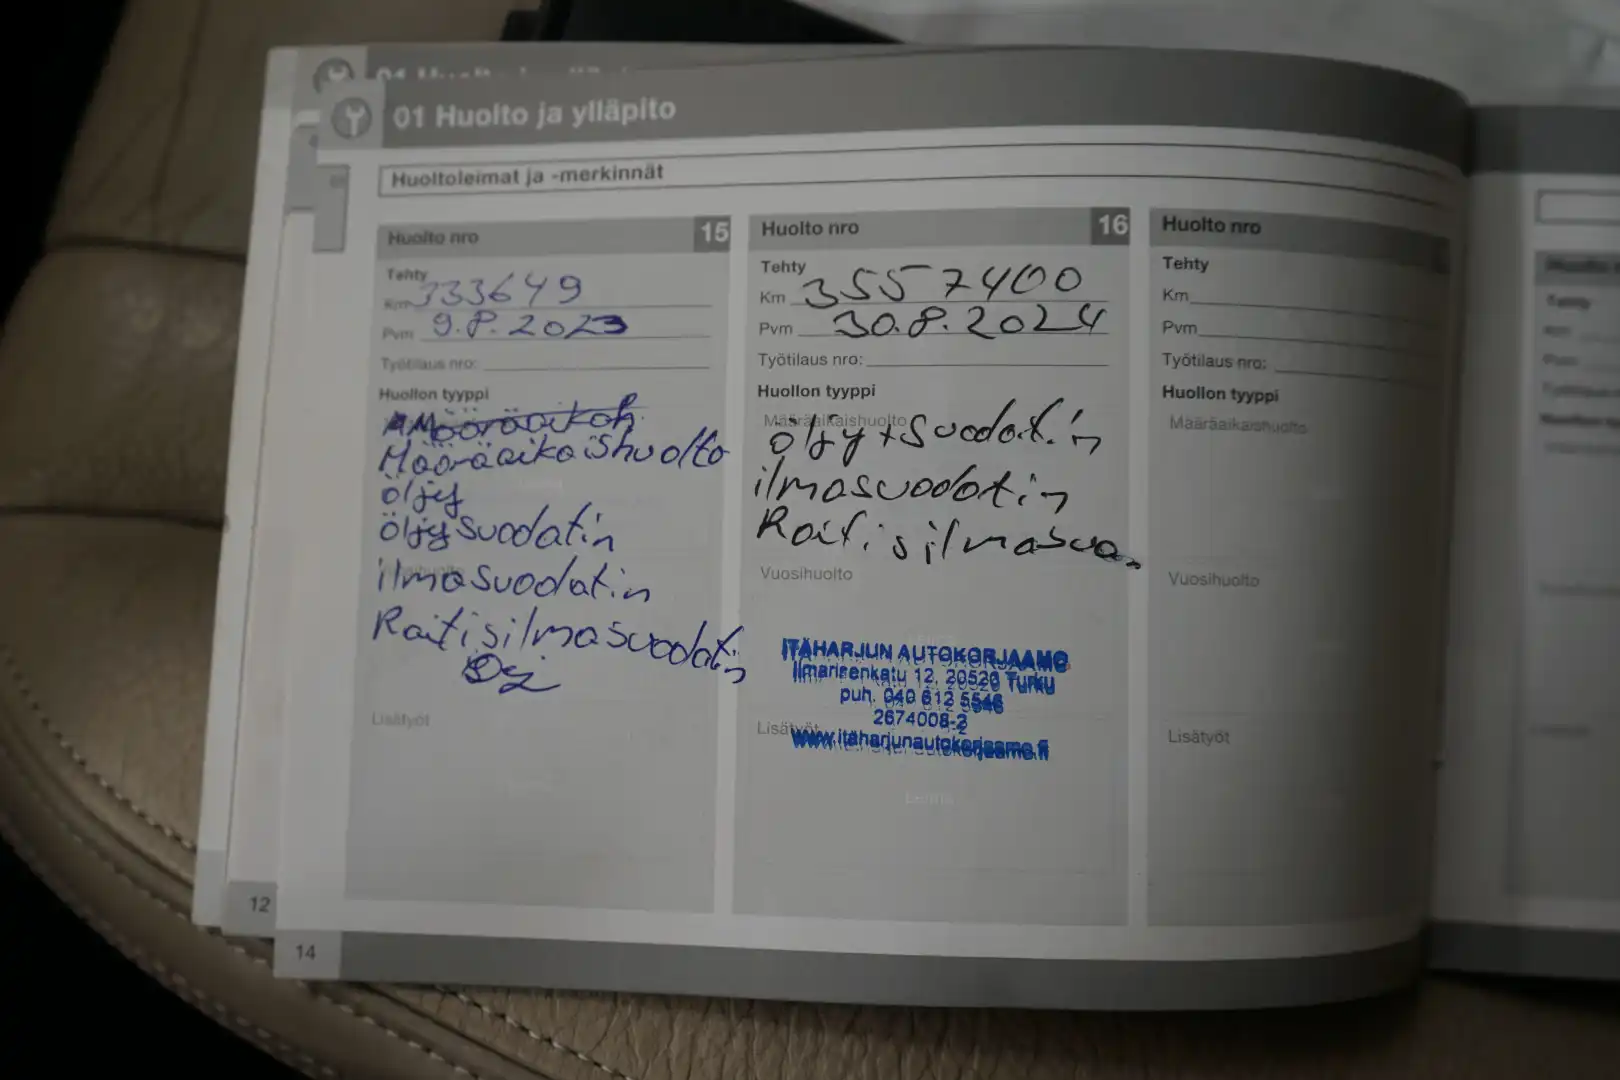 01 Huolto ja ylläpito
Huoltoleimat ja -merkinnät
Huolto nro 15
Tehty
Km 333649
Pvm 9.8.2023
Työtilaus nro:
Huollon tyyppi
Määräaikaishuolto
öljy
öljysuodatin
ilmasuodatin
Raitisilmasuodatin
Lisätyöt
Huolto nro 16
Tehty
Km 3557400
Pvm 30.8.2024
Työtilaus nro:
Huollon tyyppi
Määräaikaishuolto
öljy+suodatin
ilmasuodatin
Raitisilmasuo.
Vuosihuolto
ITÄHARJUN AUTOKORJAAMO
Ilmarisenkatu 12, 20520 Turku
puh. 040 612 5546
2674008-2
Lisätyöt
www.itaharjunautokorjaamo.fi
Leima
Huolto nro
Tehty
Km
Pvm
Työtilaus nro:
Huollon tyyppi
Määräaikaishuolto
Vuosihuolto
Lisätyöt
12
14